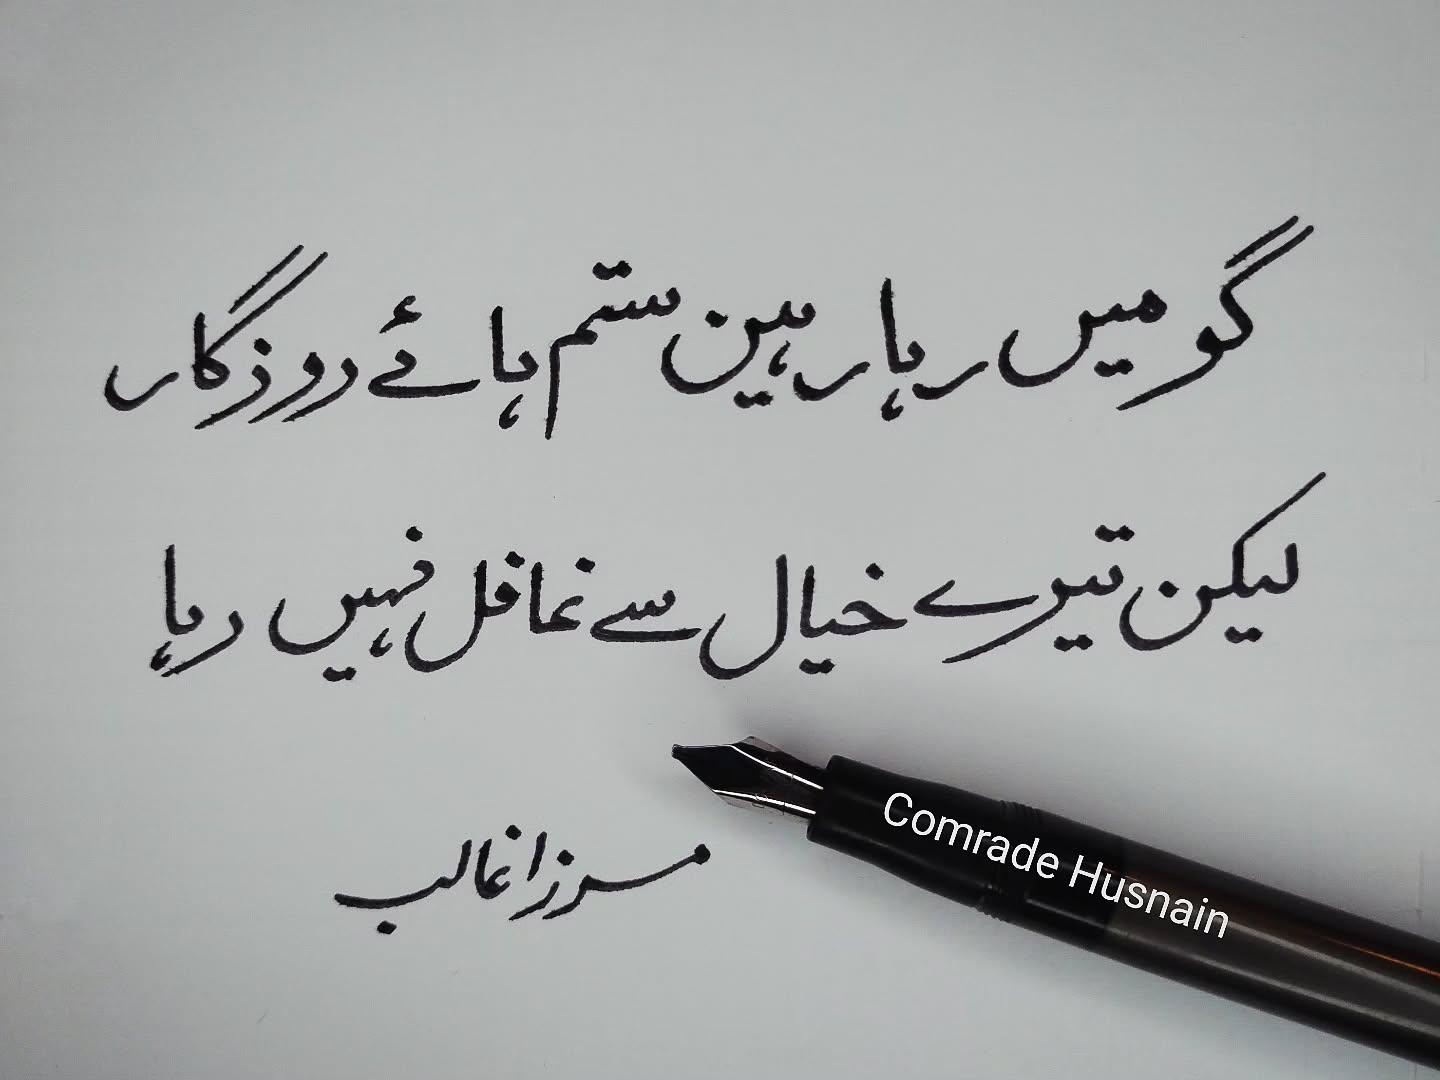 گو میں رہا رہین ستم ہائے روزگار
لیکن تیرے خیال سے غافل نہیں رہا
مرزا غالب
Comrade Husnain